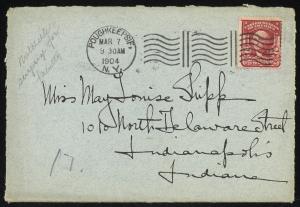 POUGHKEEPSIE
MAR 7
9 30AM
1904
N.Y.
Miss May Louise Shipp
1010 North Delaware Street
Indianapolis
Indiana
17.